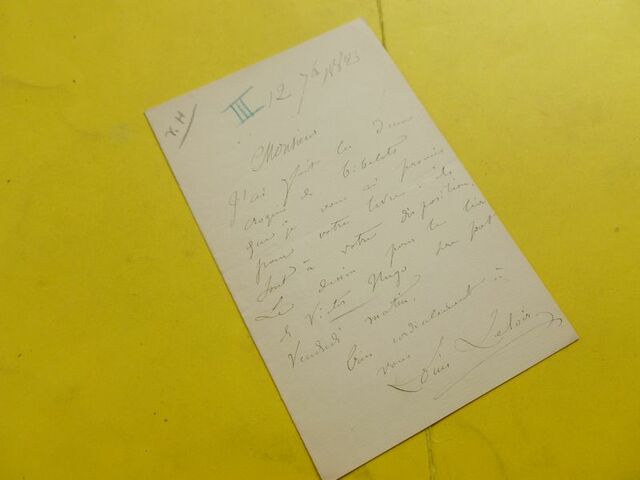 V. H
III 12 7bre 1883
Monsieur
J'ai fait les deux
croquis de bibelots
que je vous ai promis
pour votre livre ; ils
sont à votre disposition.
Le dessin pour le livre
de Victor Hugo sera fait
Vendredi matin.
Bien cordialement à
vous
Louis Leloir